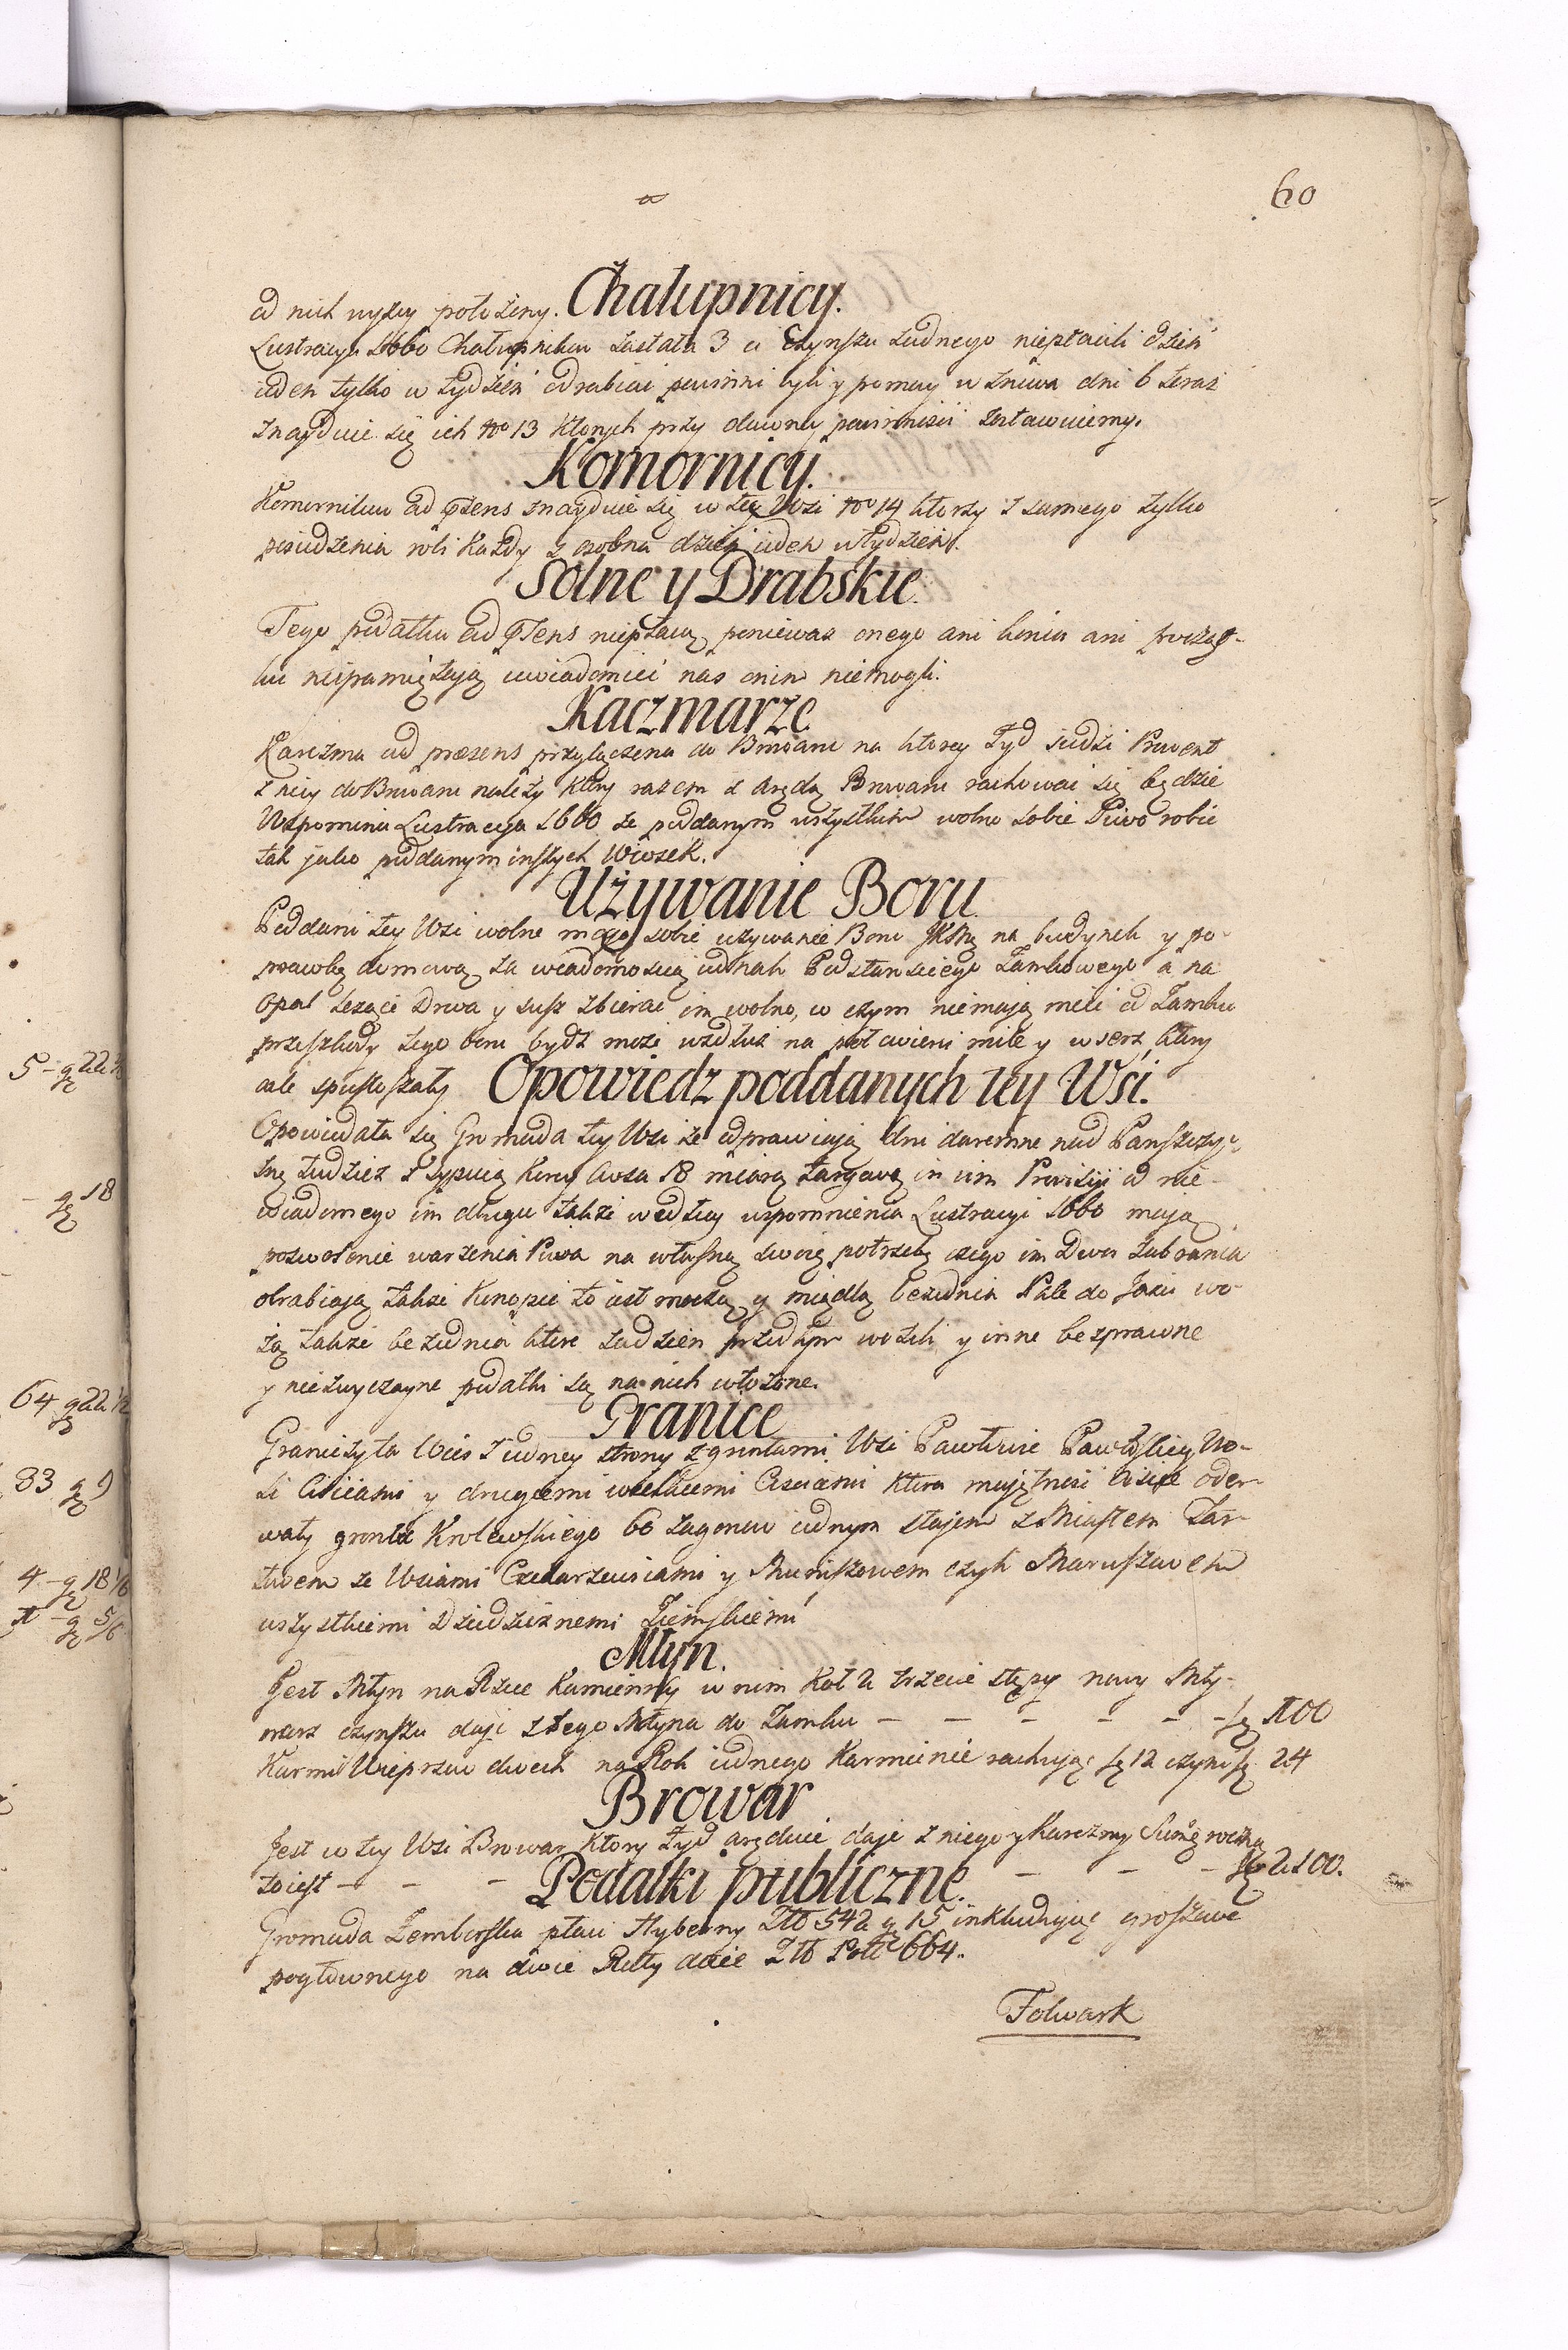 60
od nich wyzey położony. Chałupnicy.
Lustracya 1660 Chałupnikow zastała 3 ci Czynszu żadnego niepłacili dzień
ieden tylko w tydzień odrabiać powinni byli y pomocy w żniwa dni 6 teraz
znayduie się ich Nro 13 Ktorych przy dawney powinności zostawuiemy.
Komornicy.
Komornikow ad prsens znayduie się w tey Wsi Nro 14 ktorzy z samego tylko
posiedzenia robi Każdy z osobna dzień ieden w tydzień.
Solne y Drabskie
Tego podatku ad prsens niepłacą poniewaz onego ani końca ani począt-
ku niepamiętaią uwiadomić nas onim niemogli.
Kaczmarze
Karczma ad præsens przyłączona do Browaru na ktorey Zyd siedzi Prowent
z niey do Browaru należy ktory razem z Arędą Browaru rachować się będzie
Wspomina Lustracya 1660 ze poddanym wszystkim wolno sobie Piwo robić
tak jako poddanym inszych Wiosek.
Używanie Boru
Poddani tey Wsi wolne maią sobie uzywanie Boru JKMę na budynek y po-
prawkę domową za wiadomoscią iednak Podstarosciego Zamkowego a na
Opał leżące Drwa y susz zbierac im wolno, w czym niemaią mieć od Zamku
przeszkody tego boru bydź może wzdłuz na puł cwierci mile y wserz ktory
cale spustoszały Opowiedz poddanych tey Wsi.
Opowiedała się Gromada tey Wsi że odprawiaią dni daremne nad Panszczy-
znę tudziesz zsypuią Korcy Owsa 18 miarą targową in vim Provizyi od nie-
wiadomego im długu także według wspomnienia Lustracyi 1660 maią
pozwolenie warzenia Piwa na własną swoię potrzebę czego im Dwor zabrania
obrabiaią także Konopie to iest moczą y międlą bezednia Pale do Jazu wo-
żą także bezednia ktore zadzień przedtym wozili y inne bezprawne
y niezwyczayne podatki są na nich włożone.
Granice
Graniczy ta Wies z iedney strony z gruntami Wsi Pawłowic Pawłoskiey Wo-
li Cisicami y drugiemi wielkiemi Ciscami Ktora maiętność Cisice oder-
wały gruntu Krolewskiego 60 zagonow iednym stajem z Miastem Tar-
łowem ze Wsiami Czekarzewicami y Mumiszowem czyli Maruszowem
wszystkiemi Dziedzicznemi Ziemskiemi
Młyn.
Jest Młyn na Rzece Kamienney w nim Koł 2 trzecie stępy nowy Mły-
narz czynszu daje z tego Młyna do Zamku — — — — — fl 100
Karmi Wieprzow dwoch na Rok iednego Karmienie rachuiąc fl 12 czyni fl 24
Browar
Jest w tey Wsi Browar Ktory Zyd aręduie daje z niego y Karczmy Sumę roczną
to iest — — — — — — fl 2100.
Podatki publiczne.
Gromada Zemborska płaci Hyberny Złł 542 g 15 inkluduiąc groszowe
pogłownego na dwie Ratty daie Złł Poll 664.
Folwark
5 - g 22 ½
- g 18
64 g 22 ½
83 g 9
4 - g 18 1/6
1 - g 5/6